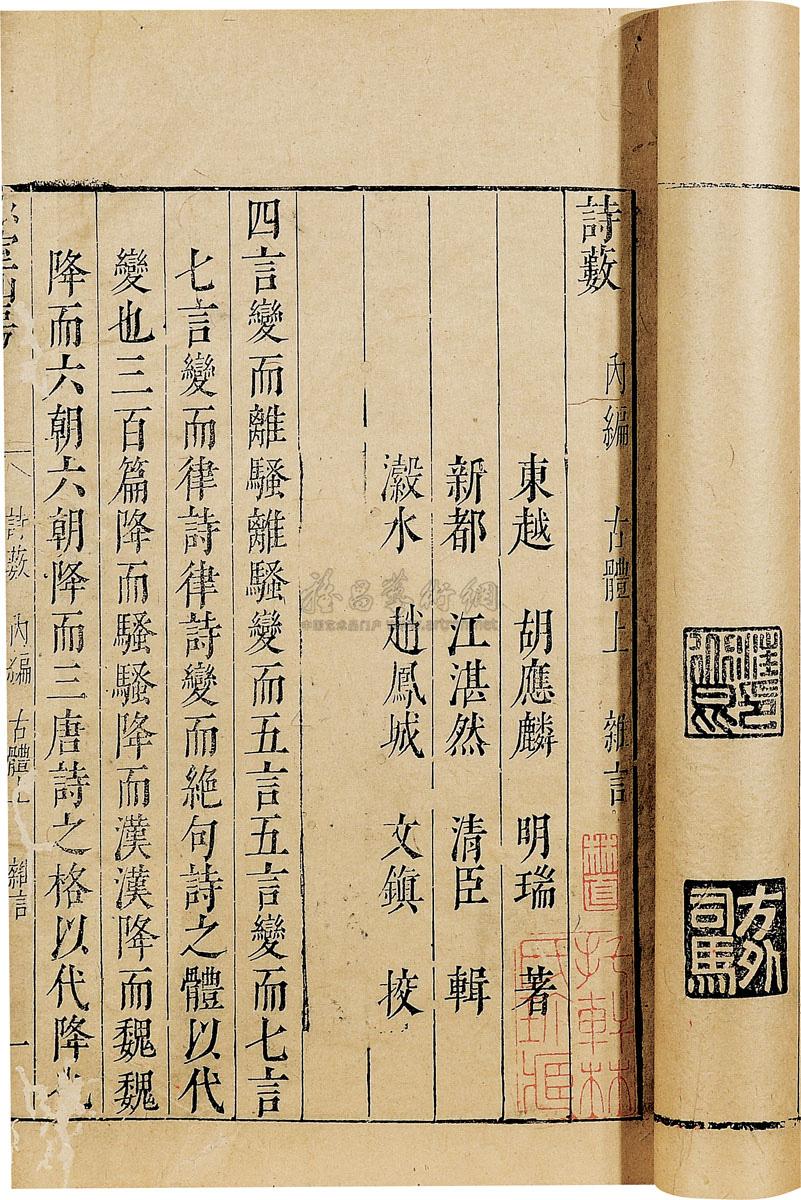 方外司馬
詩藪 內編 古體上 雜言
東越 胡應麟 明瑞 著
新都 江湛然 清臣 輯
瀫水 趙鳳城 文鎮 挍
四言變而離騷離騷變而五言五言變而七言
七言變而律詩律詩變而絕句詩之體以代
變也三百篇降而騷騷降而漢漢降而魏魏
降而六朝六朝降而三唐詩之格以代降也
詩藪 內編 古體上 雜言 一